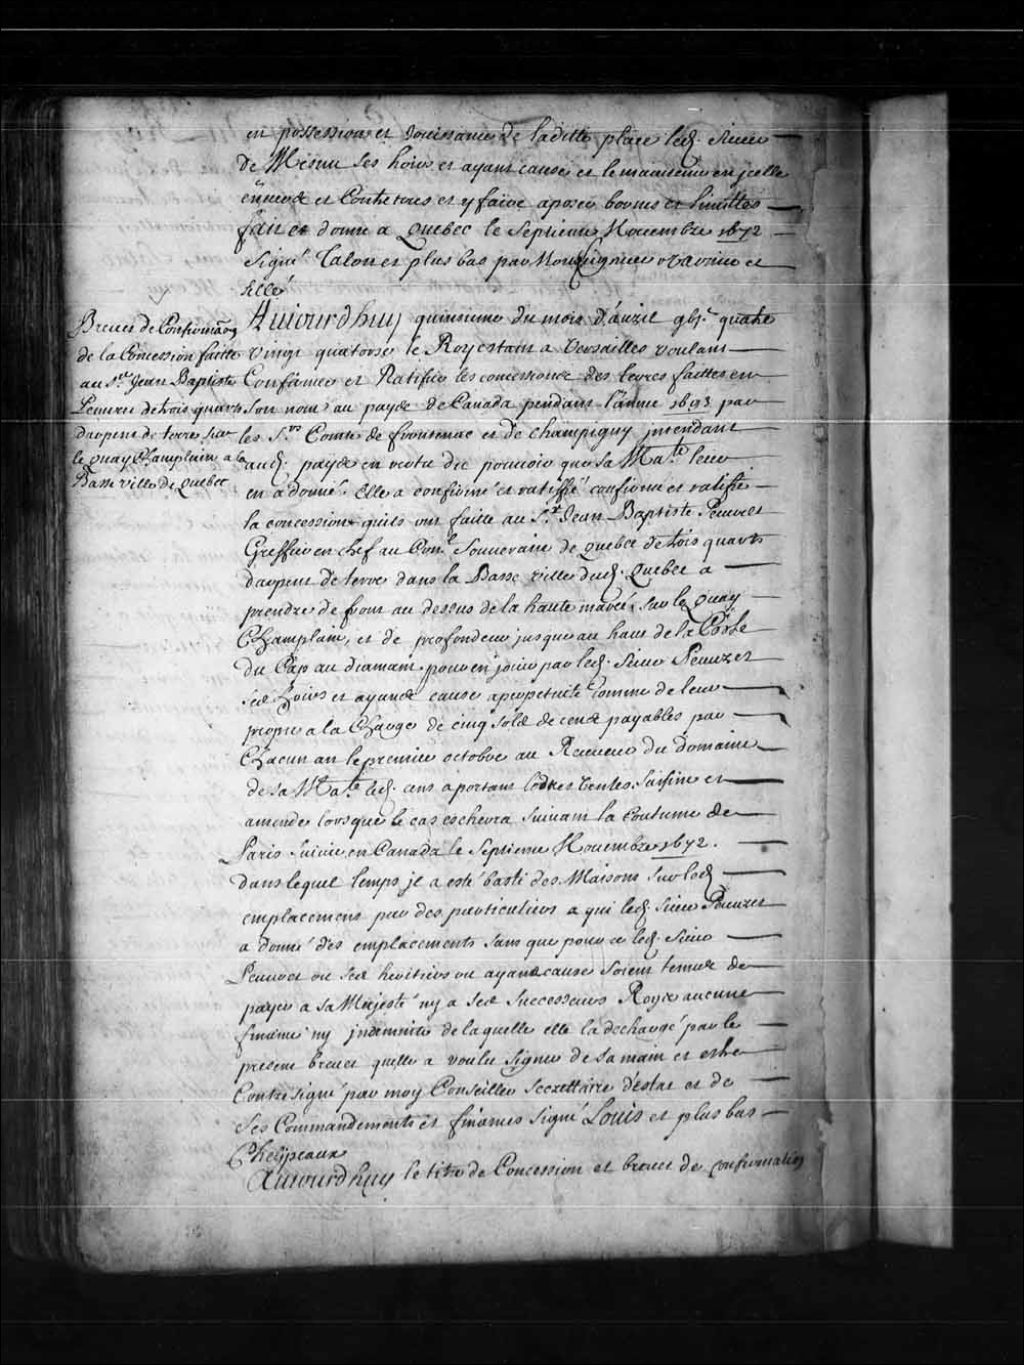 en possession et Jouissance de laditte place led. sieur
de Mesnu ses hoirs et ayans cause et le maintenir en jcelle
envers et Contre tous et y faire aposer bornes et limittes
fait et donné a Quebec le Septieme Novembre 1672
Signé Talon et plus bas par Monseigneur Varnier et
sellé
Brevet de Confirmaõn
de la Concession faitte
au Sr. Jean Baptiste
Peuvret de trois quarts
darpent de terre sur
le Quay Champlain a la
Basse ville de Quebec
Aujourdhuy quinsieme du mois D'avril gbjc. quatre
vingt quatorse le Roy estant a Versailles voulant
Confirmer et Ratifier les concessions des terres faittes en
Son nom au payes de Canada pendant l'année 1693 par
les Srs. Comte de frontenac et de Champigny jntendant
aud. payes en vertu du pouvoir que Sa Maté. leur
en a donné. Elle a confirmé et ratiffié confirme et ratifie
la concession quils ont faitte au Sr. Jean Baptiste Peuvret
Greffier en chef au Conel. Souverain de Quebec de trois quarts
darpent de terre dans la Basse ville dud. Quebec a
prendre de front au dessus de la haute marée, sur le Quay
Champlain, et de profondeur jusque au haut de la Coste
du Cap au diamant, pour en jouir par led. Sieur Peuvret
ses hoirs et ayans cause a perpetuité comme de leur
propre a la Charge de cinq sols de cens payables par
Chacun an le premier octobre au Receveur du Domaine
de sa Maté. led. cens aportant lods et ventes, saisine et
amende lorsque le cas eschera suivant la coutume de
Paris suivie en Canada le Septieme Novembre 1672.
dans lequel temps jl a esté basti des Maisons sur led.
emplacement par des particuliers a qui led. sieur Peuvret
a donné des emplacements sans que pour ce led. sieur
Peuvret ou ses heritiers ou ayans cause soient tenus de
payer a sa Majesté ny a ses successeurs Roys aucune
finance ny jndemnité de laquelle elle la dechargé par le
present brevet quelle a voulu signer de sa main et estre
Contresigné par moy Conseiller Secrettaire d'estat et de
ses Commandements et finances signé Louis et plus bas
Phelypeaux
Aujourdhuy le titre de Concession et brevet de confirmation